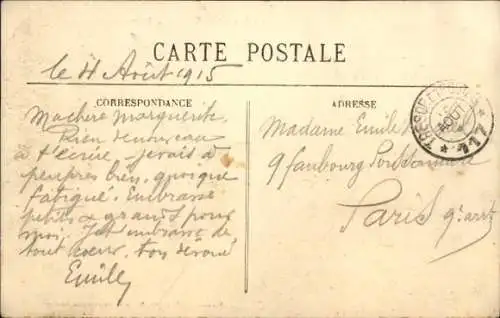 CARTE POSTALE
le 4 Août 1915
CORRESPONDANCE
ADRESSE
Ma chère Marguerite
Rien de nouveau
à t'écrire je vais à
peu près bien, quoique
fatigué. Embrasse
petits & grands pour
moi. Je t'embrasse de
tout coeur. ton dévoué
Emile
Madame Emile
9 faubourg Poissonnière
Paris 9e arrt
TRESOR ET POSTES
AOUT
* 117 *